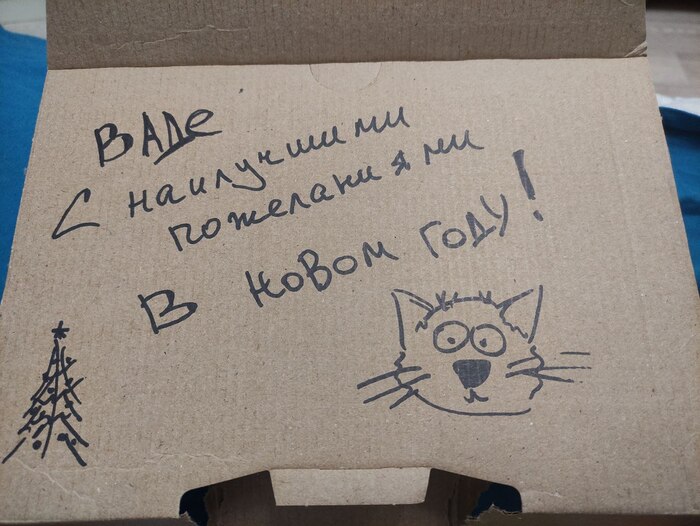 ВАДе
С наилучшими
пожеланиями
В новом году!